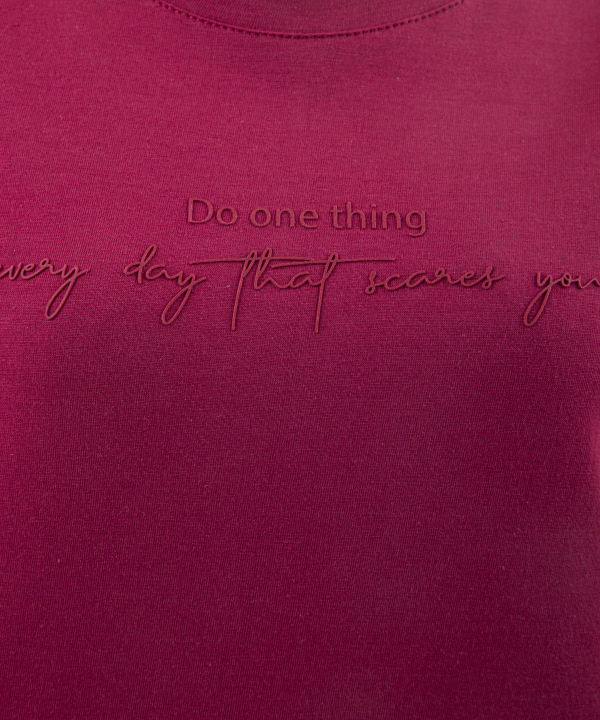 Do one thing
every day that scares you